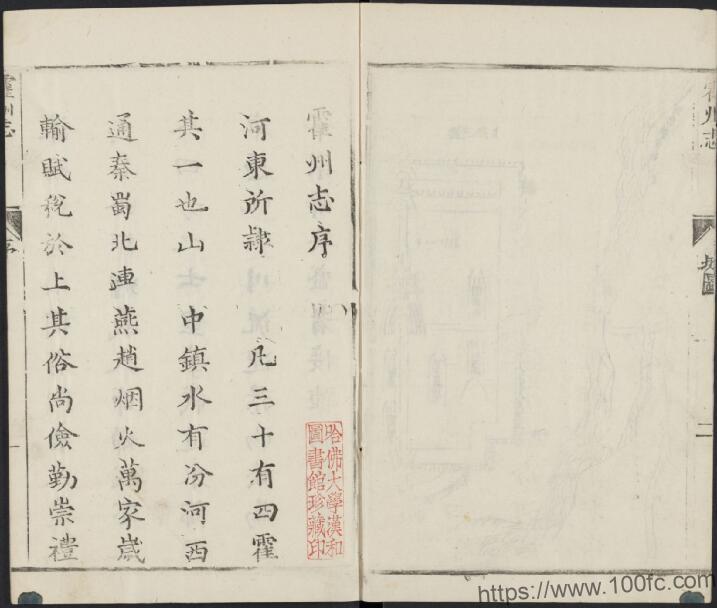 霍州志
圖
二
霍州志序
河東所隸 凡三十有四霍
其一也山 中鎮水有汾河西
通秦蜀北連燕趙烟火萬家歲
輸賦稅於上其俗尚儉勤崇禮
哈佛大學漢和
圖書館珍藏印
霍州志
序
一
https://www.100fc.com